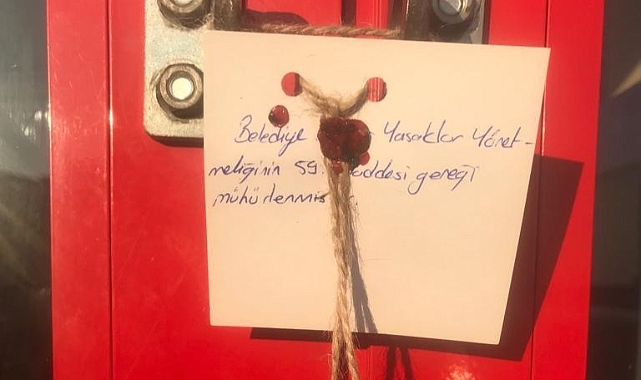 Belediye Yasaklar Yönet-
meliğinin 59. maddesi gereği
mühürlenmiş